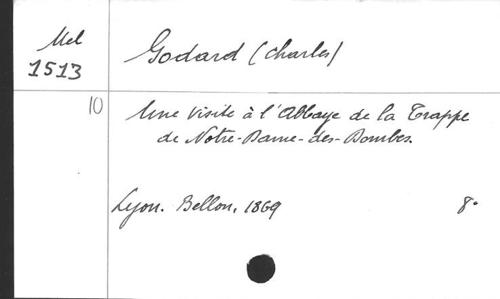 Mel
1513
Godard (Charles)
10
Une Visite à l'Abbaye de la Trappe
de Notre-Dame-des-Dombes.
Lyon. Bellon, 1869
8°